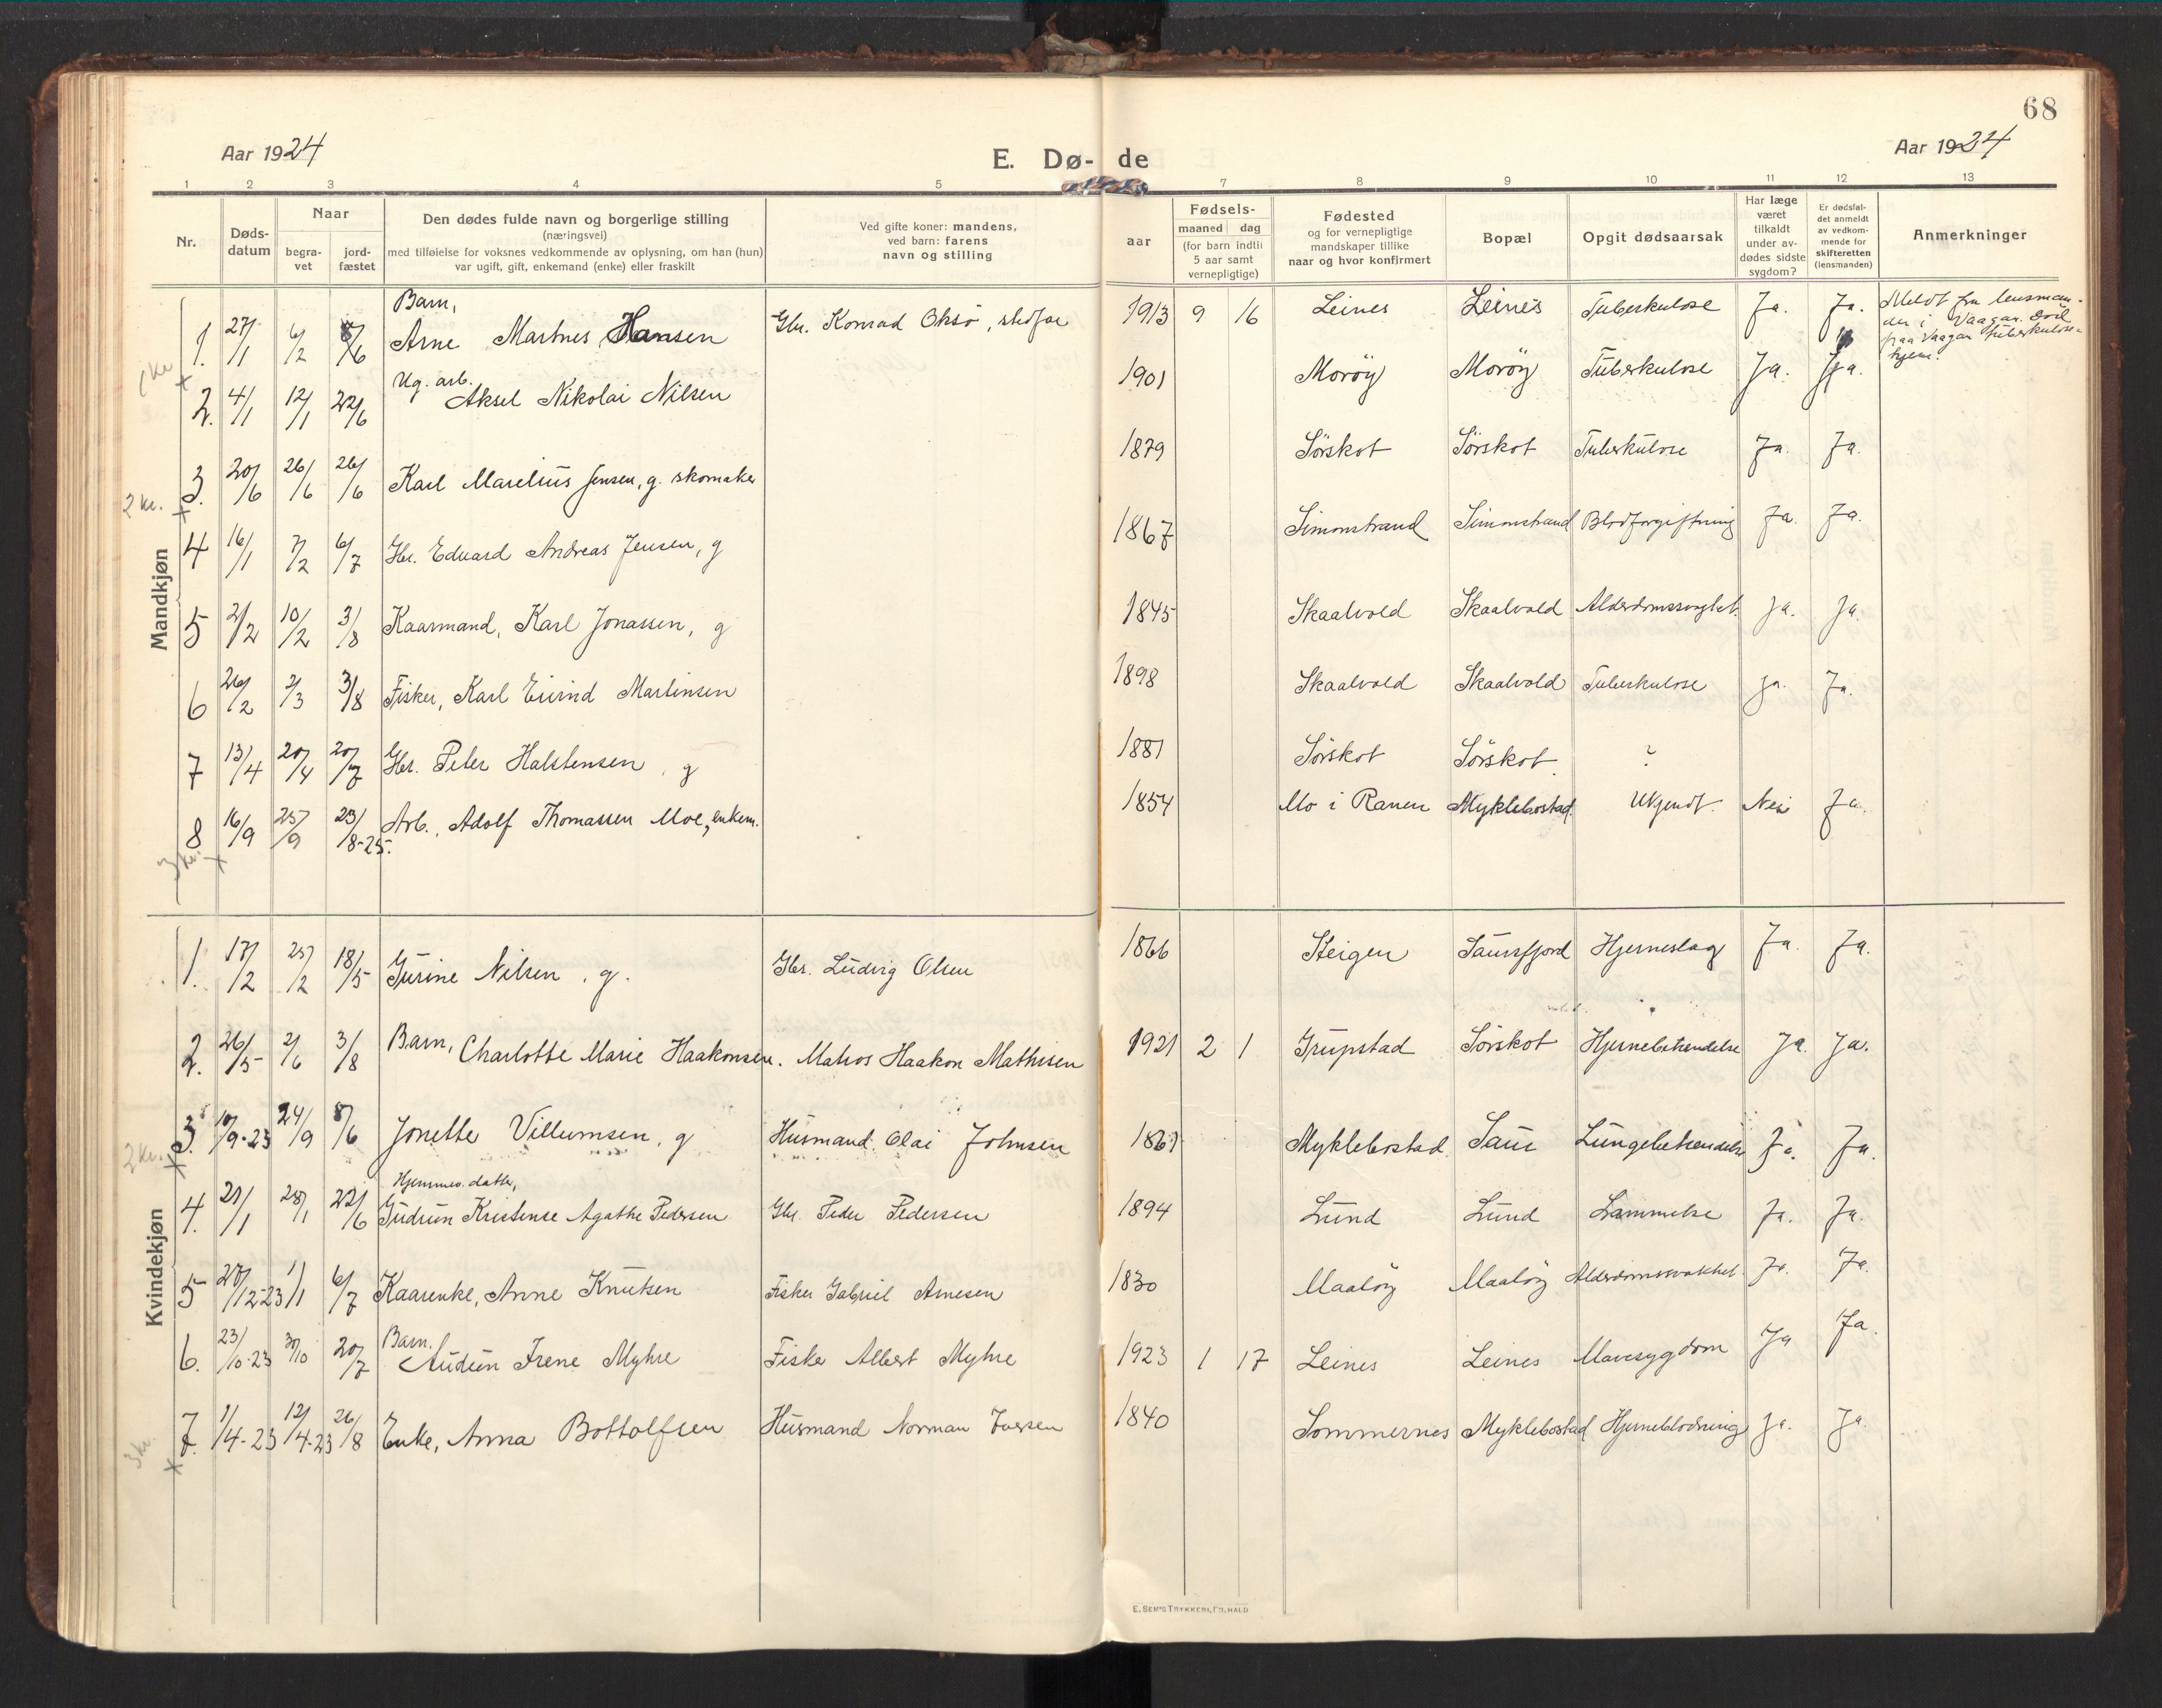 68
Aar 1924
E. Dø- de
Aar 1924
1 2 3 4 5 7 8 9 10 11 12 13
Nr.
Døds-
datum
Naar
begra-
vet
jord-
fæstet
Den dødes fulde navn og borgerlige stilling
(næringsvei)
med tilføielse for voksnes vedkommende av oplysning, om han (hun)
var ugift, gift, enkemand (enke) eller fraskilt
Ved gifte koner: mandens,
ved barn: farens
navn og stilling
aar
Fødsels-
maaned dag
(for barn indtil
5 aar samt
vernepligtige)
Fødested
og for vernepligtige
mandskaper tillike
naar og hvor konfirmert
Bopæl
Opgit dødsaarsak
Har læge
været
tilkaldt
under av-
dødes sidste
sygdom?
Er dødsfal-
det anmeldt
av vedkom-
mende for
skifteretten
(lensmanden)
Anmerkninger
Mandkjøn
Barn,
1. 27/1 6/2 8/6 Arne Martnes Hansen Gbr. Konrad Oksø, stedfar 1913 9 16 Leines Leines Tuberkulose Ja. Ja.
Meldt fra lensman-
den i Vaagan. Död
paa Vaagan tuberkulose-
hjem.
1 kr
Ug. arb.
2. 4/1 12/1 22/6 Aksel Nikolai Nilsen 1901 Moröy Moröy Tuberkulose Ja. Ja.
3. 20/6 26/6 26/6 Karl Marelius Jensen, g. skomaker 1879 Sörskot Sörskot Tuberkulose Ja. Ja.
2 kr.
4 16/1 7/2 6/7 Gbr. Edvard Andreas Jensen, g 1867 Simonstrand Simonstrand Blodforgiftning Ja. Ja.
5 2/2 10/2 3/8 Kaarmand, Karl Jonassen, g 1845 Skaalvold Skaalvold Ja. Ja.
6 26/2 2/3 3/8 Fisker, Karl Eivind Martinsen 1898 Skaalvold Skaalvold Tuberkulose Ja. Ja.
7 13/4 20/4 20/7 Gbr. Peter Halstensen, g 1881 Sörskot Sörskot. ?
8 16/9 25/9 23/8-25. Arb., Adolf Thomassen Moe, enkem. 1854 Mo i Ranen Myklebostad. Ukjendt. Nei Ja.
3 kr.
Kvindekjøn
1. 17/2 25/2 18/5 Gurine Nilsen, g. Gbr. Ludvig Olsen 1866 Steigen Saursfjord Hjerneslag Ja. Ja.
2. 26/5 2/6 3/8 Barn, Charlotte Marie Haakonsen. Matros Haakon Mathisen 1921 2 1 Grupstad Sörskot Hjernebetændelse Ja. Ja.
3. 10/9-23 24/9 8/6 Jonette Villumsen, g Husmand. Olai Johnsen 1861 Myklebostad. Saur Lungebetændelse Ja. Ja.
2 kr.
Hjemmev. datter,
4. 21/1 28/1 22/6 Gudrun Kristense Agathe Pedersen Gbr. Peder Pedersen 1894 Lund Lund Lammelse Ja. Ja.
5 27/12-23 1/1 6/7 Kaarenke, Anne Knutsen Fisker Gabriel Arnesen 1830 Maalöy Maalöy Alderdomssvakhet. Ja. Ja.
Barn.
6. 23/10-23 30/10 20/7 Audun Irene Myhre Fisker Albert Myhre 1923 1 17 Leines Leines Mavesygdom Ja Ja.
7. 1/4-23 12/4-23 26/8 Enke, Anna Bottolfsen Husmand Norman Iversen 1840 Sommernes Myklebostad Hjerneblödning Ja. Ja.
3 kr.
E. SEM'S TRYKKERI, FR.HALD